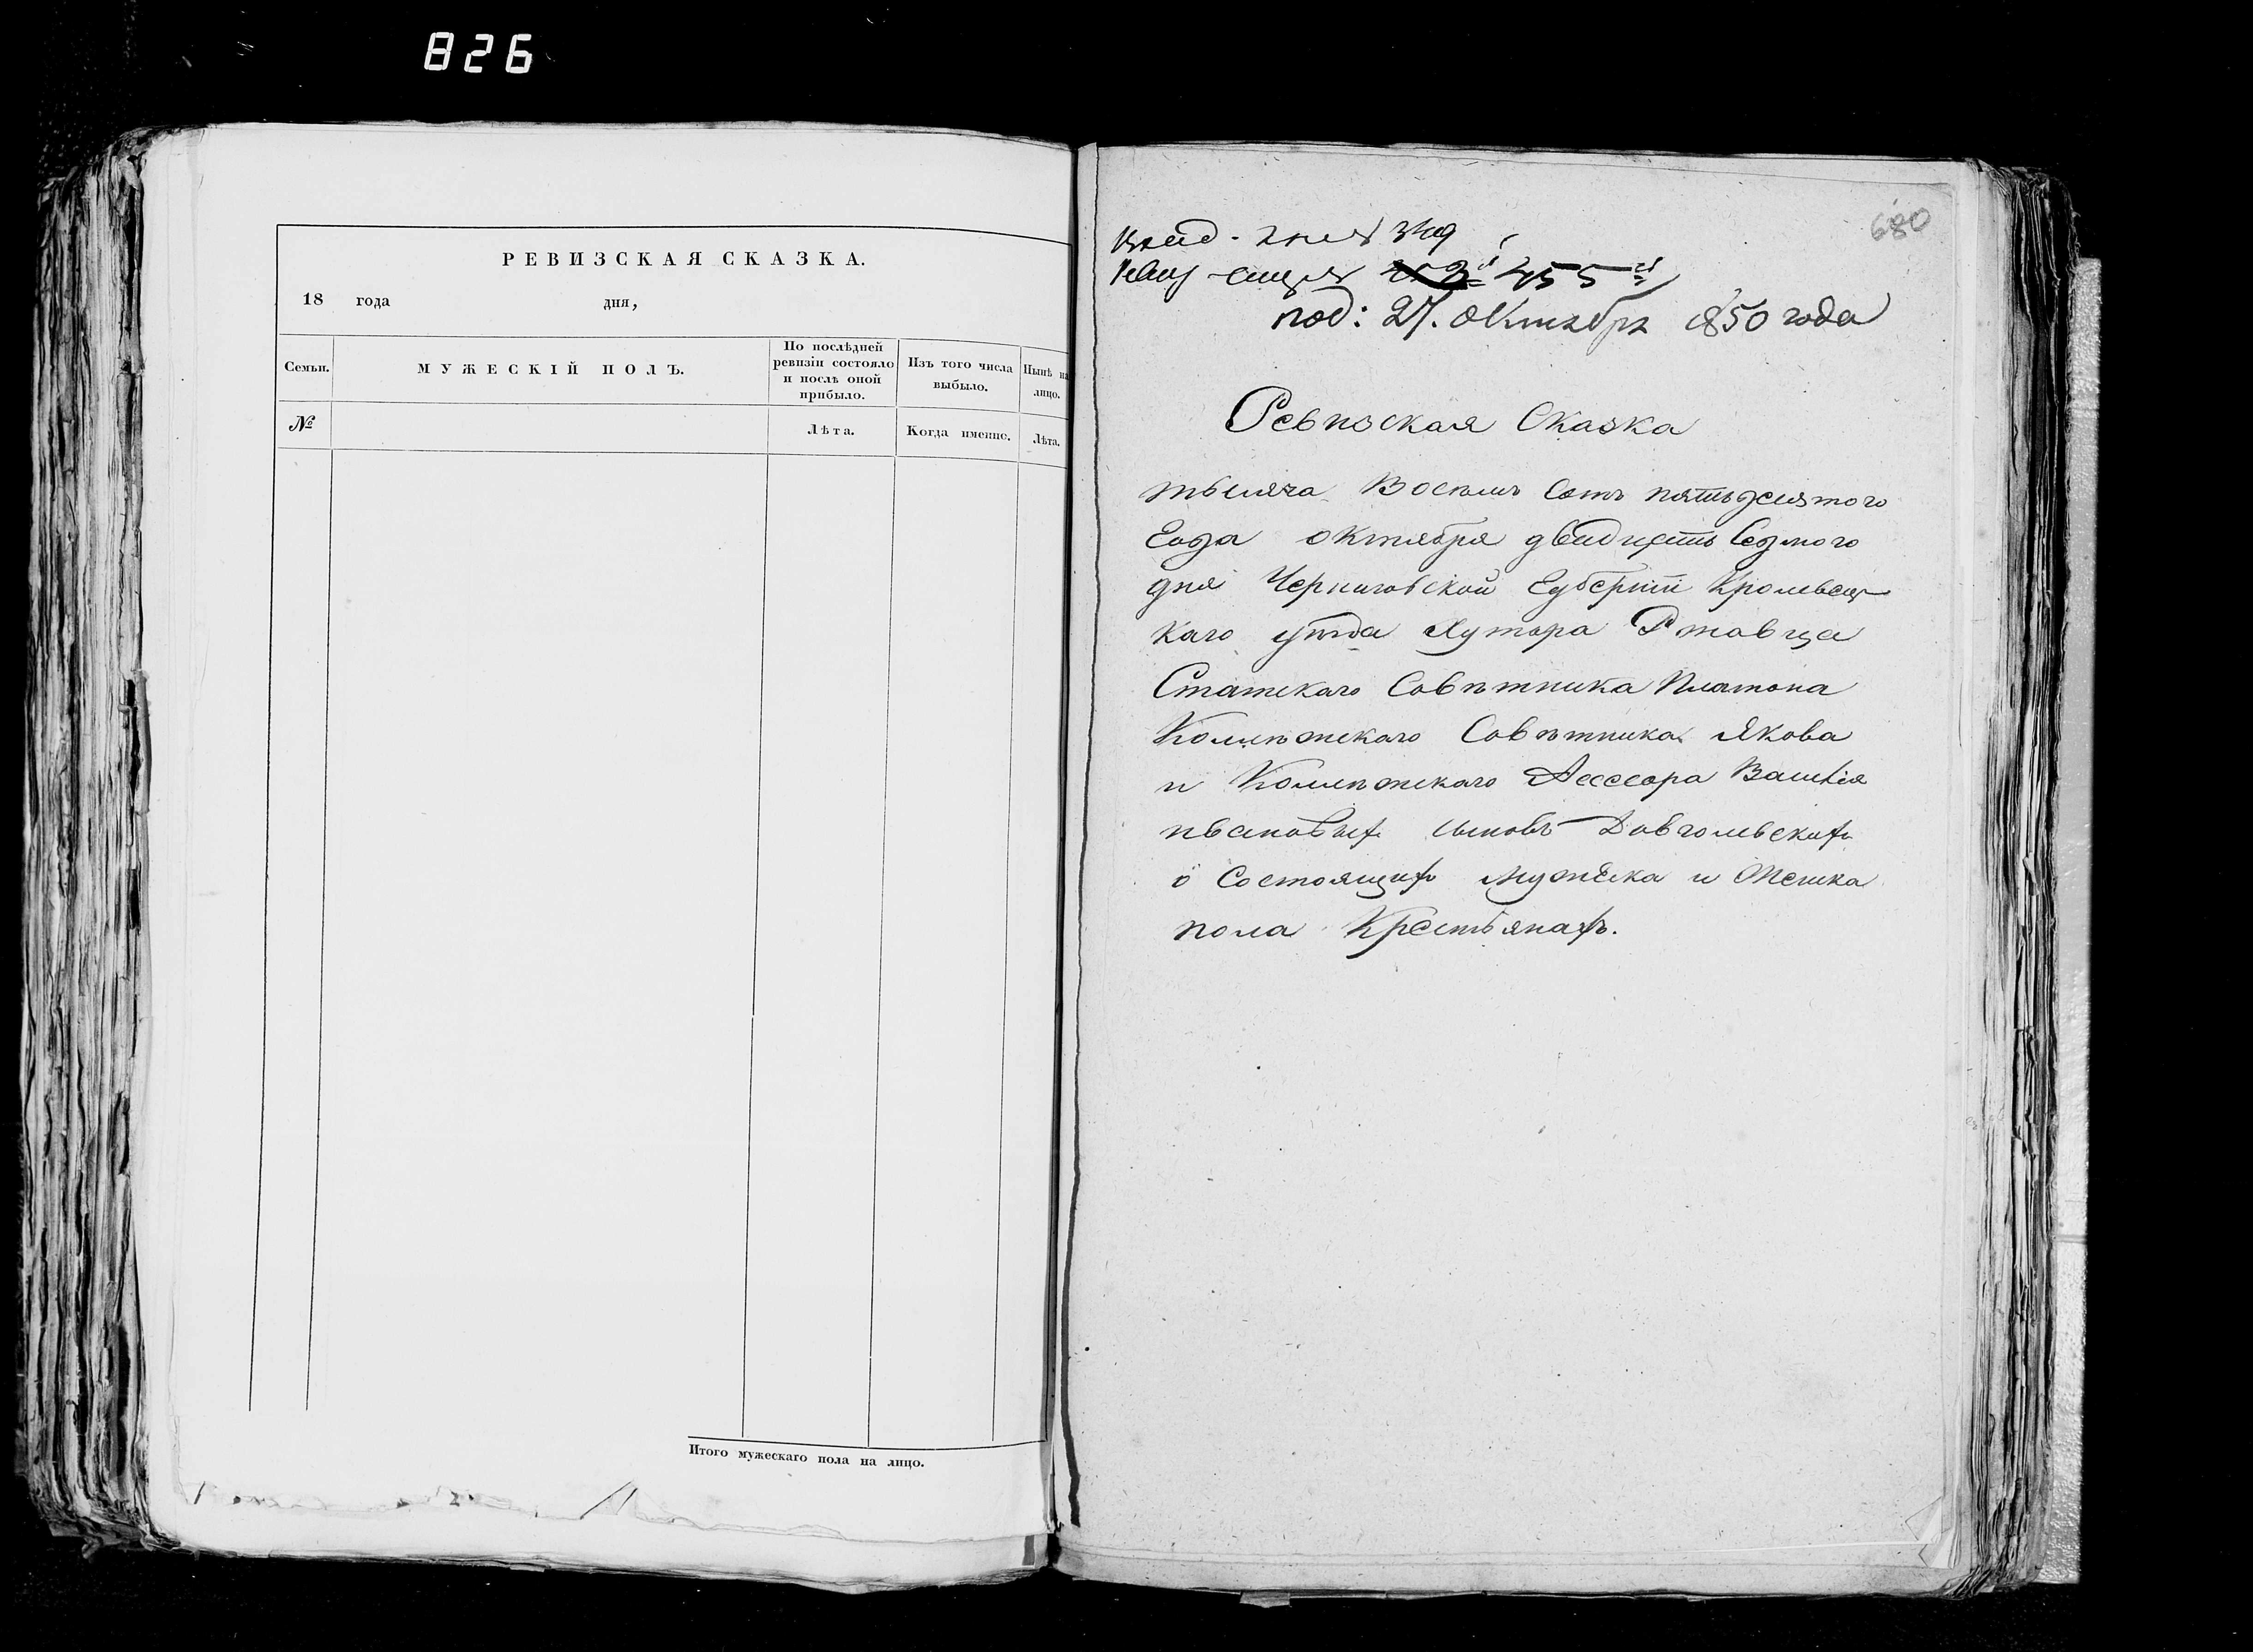 826
РЕВИЗСКАЯ СКАЗКА.
18 года дня,
Семьи.
МУЖЕСКІЙ ПОЛЪ.
По послѣдней ревизіи состояло и послѣ оной прибыло.
Изъ того числа выбыло.
Нынѣ на лицо.
№
Лѣта.
Когда именно.
Лѣта.
Итого мужескаго пола на лицо.
680
455
под: 27. Октября 1850 года
Ревизская Сказка
тысяча Восемь Сотъ пятьдесятого
Года октября двадцять Седмого
дня Черниговской Губерніи Кролевец
каго уѣзда Хутора Ртавца
Статскаго Совѣтника Платона
Колѣжскаго Совѣтника Якова
и Колѣжскаго Ассесора Василія
ивановыхъ сыновъ Довголевскихъ
о Состоящихъ мужеска и Женска
пола Крестьянахъ.